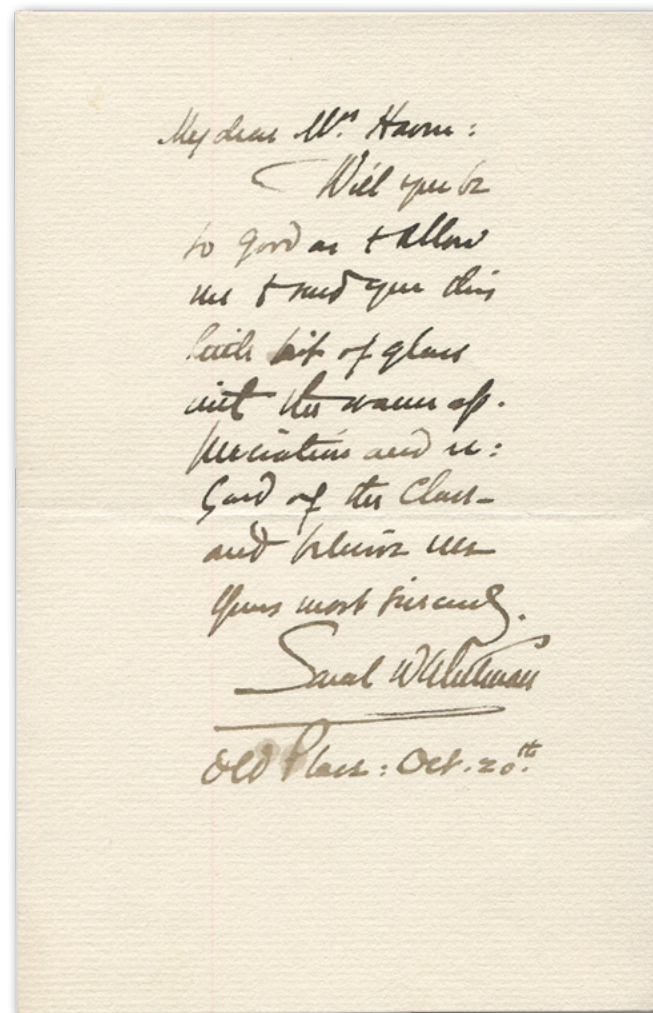 My dear Mrs
Will you be
so good as to allow
me to send you this
little bit of glass
with the warm ap-
preciation and re:
gard of the Class-
and believe me
Yours most sincerely.
Sarah W Whitman
Old Place: Oct. 20th.